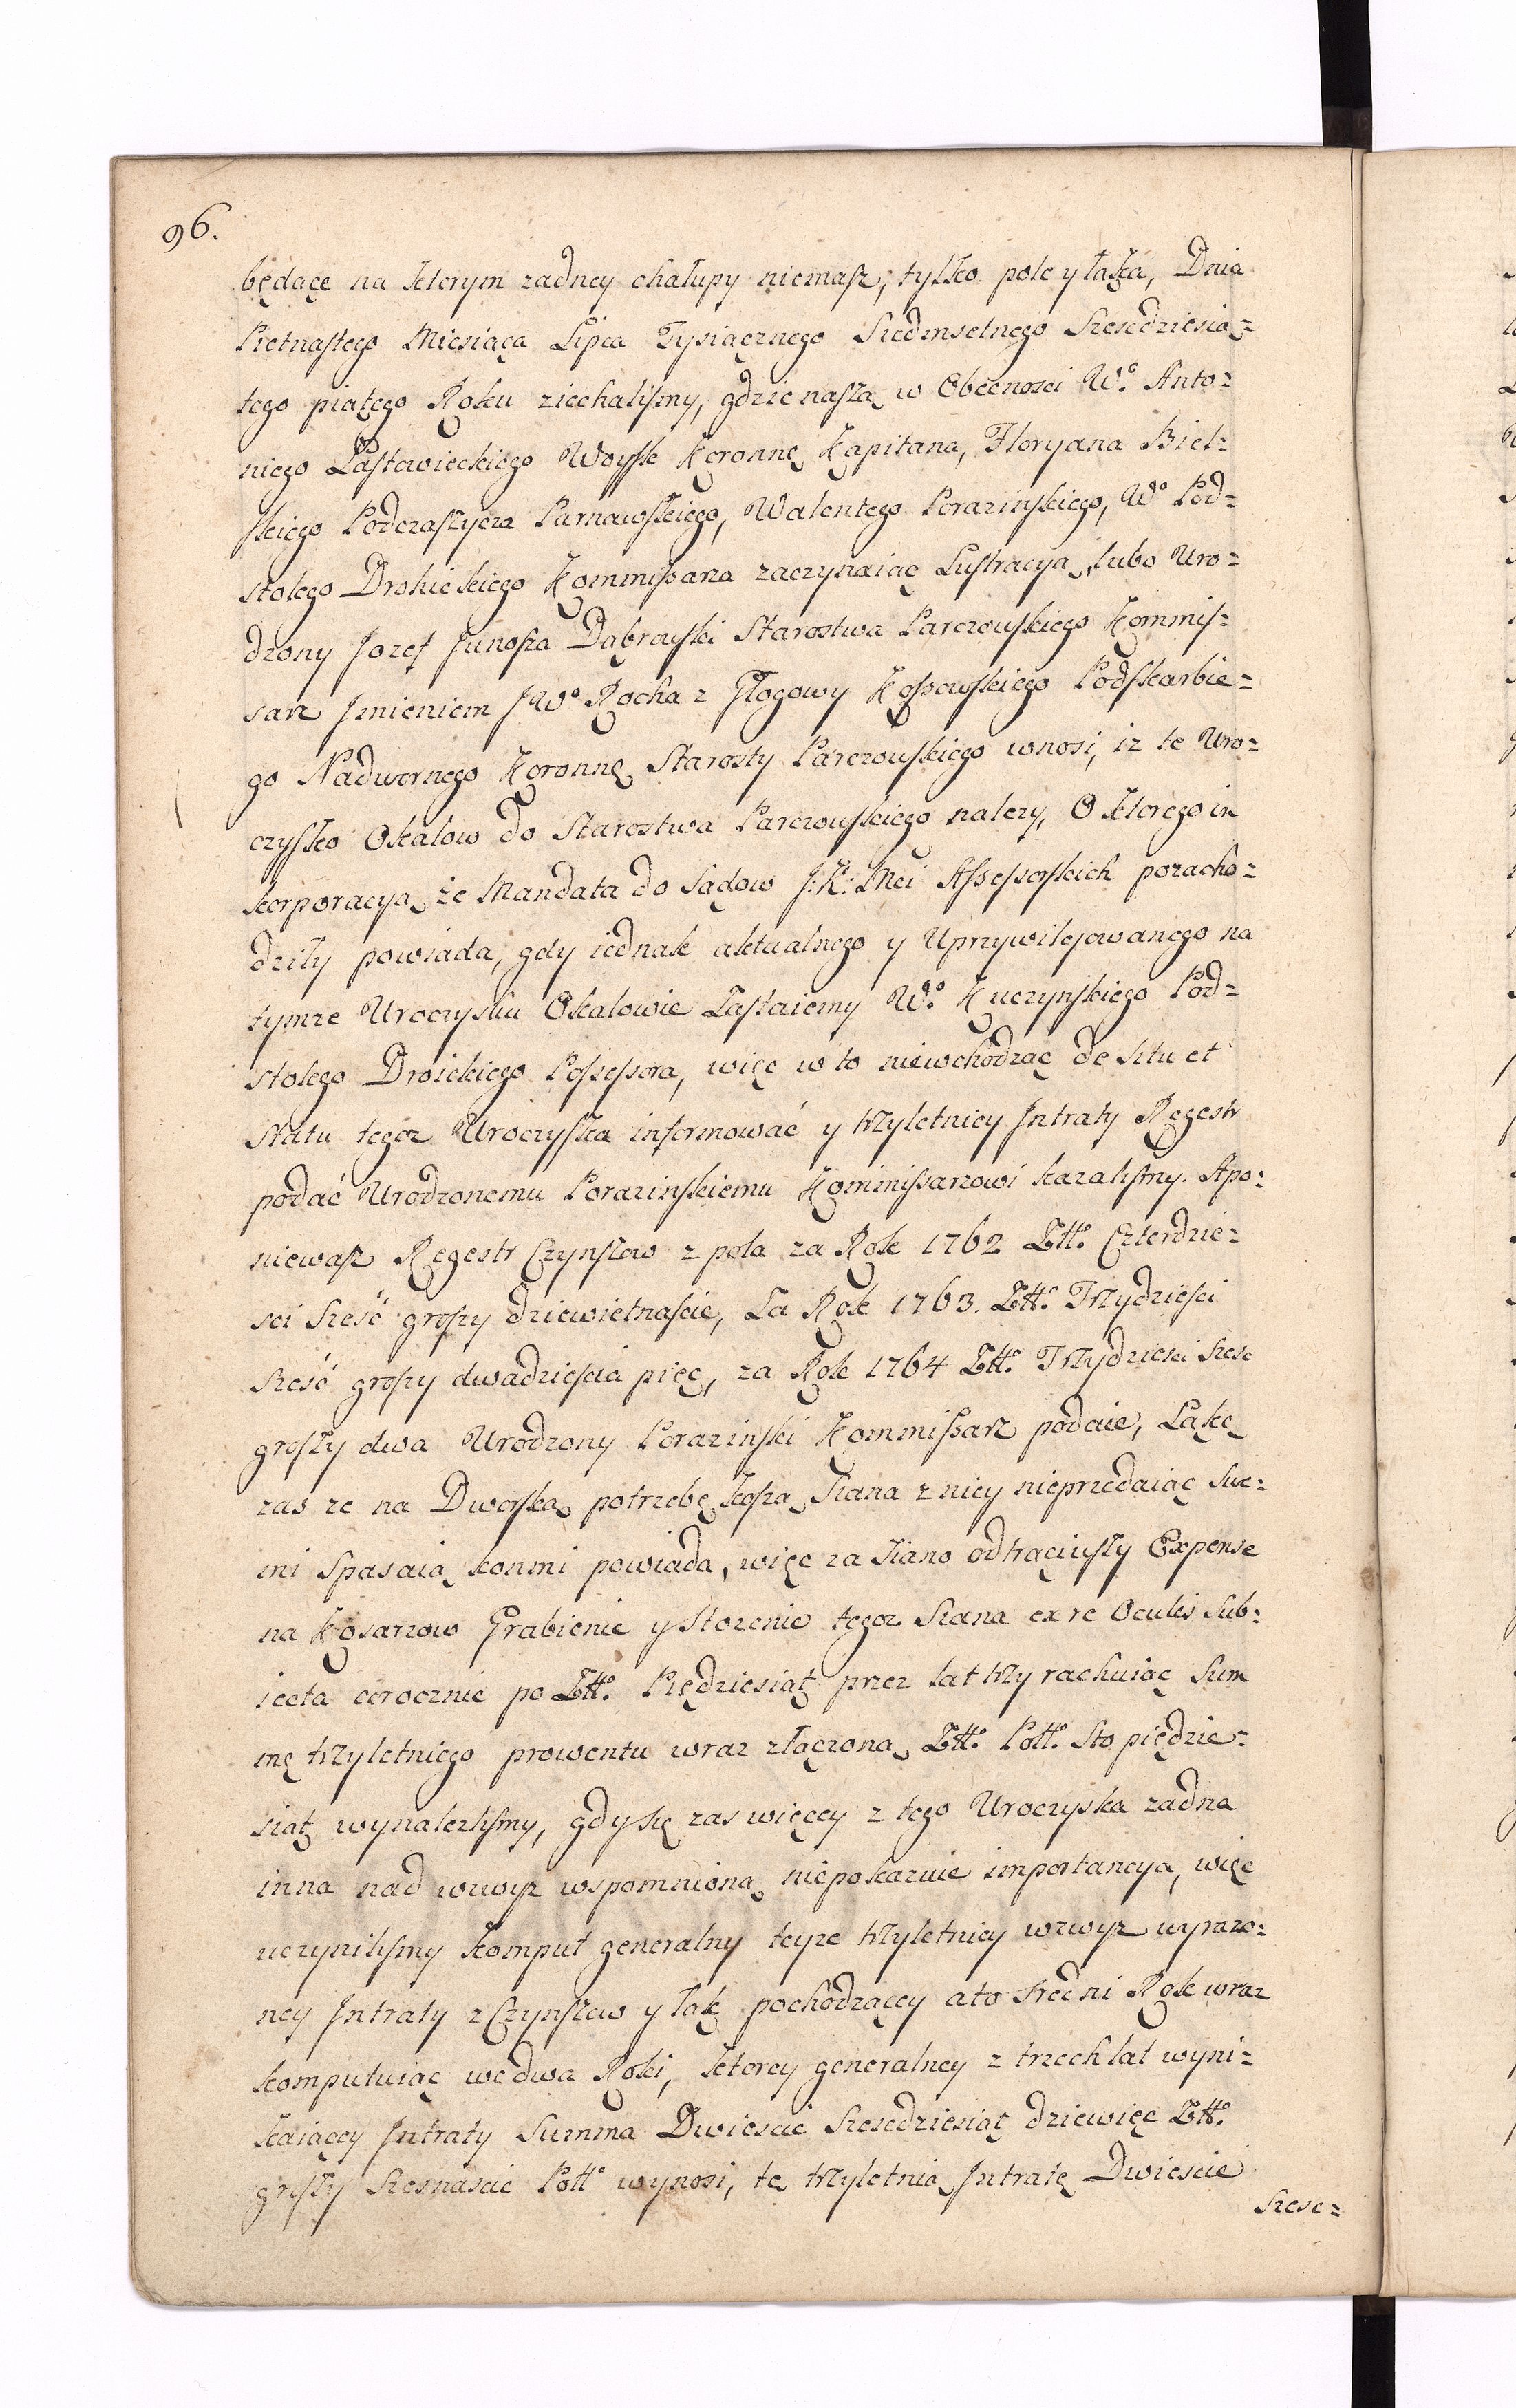 96.
będącę na ktorym zadney chałupy niemasz, tylko pole y łąka, Dnia
Pietnastego Miesiąca Lipca Tysiącznego Siedmsetnego Szescdziesią=
tego piątego Roku ziechaliśmy, gdzie naszą w Obecnosci W.º Anto=
niego Łastowieckiego Woysk Koronnę Kapitana, Floryana Biel=
skiego Podczaszyca Parnawskiego, Walentego Porazinskiego, Wº Pod=
stolego Drohickiego Kommissarza zaczynaiąc Lustracyą, lubo Uro=
dzony Jozef Junosza Dąbrowski Starostwa Parczowskiego Kommis=
sarz Jmieniem JWº Rocha z Głogowy Kossowskiego Podskarbie=
go Nadwornego Koronnę Starosty Parczowskiego wnosi, iz te Uro=
czysko Okalow do Starostwa Parczowskiego nalezy, O ktorego in
korporacyą że Mandata do Sądow J:K:Mci Assessorskich pozacho=
dziły powiada, gdy iednak aktualnego y Uprzywilejowanego na
tymze Uroczysku Okalowie Zastaiemy W.º Kuczynskiego Pod=
stolego Droickiego Possessora, więc w to niewchodząc de situ et
Statu tegoz Uroczyska informować y trzyletniey Jntraty Regestr
podać Urodzonemu Porazinskiemu Kommissarzowi kazalismy. Apo=
niewasz Regestr Czynszow z pola za Rok 1762 Złł.º Czterdzie=
sci Sześć groszy dziewietnaście, Za Rok 1763. Złł.º Trzydziesci
Sześć groszy dwadziescia pięc, za Rok 1764 Złł.º Trzydziesci Szesc
groszy dwa Urodzony Porazinski Kommissarz podaie, Łąkę
zas ze na Dworską potrzebę koszą, Siana z niey nieprzedaiąc swe=
mi Spasaią konmi powiada, więc za Siano odtrąciwszy Expense
na Kosarzow Grabienie y Złozenie tegoz Siana ex re Oculis Sub=
iecta corocznie po Złł.º Piędziesiąt przez lat trzy rachuiąc Sum
mę trzyletniego prowentu wraz złączoną Złł.º Poll.º Sto piędzie=
siąt wynalezlismy, gdy się zas więcey z tego Uroczyska zadna
inna nad wzwyz wspomnioną niepokazuie importancya, więc
uczynilismy komput generalny teyze trzyletniey wzwyz wyrazo=
ney Jntraty z Czynszow y łąk pochodzącey a to Sredni Rok wraz
komputuiąc we dwa Roki, ktorey generalney z trzech lat wyni=
kaiącey Jntraty Summa Dwiescie Szescdziesiąt dziewięc Złł.º
groszy Szesnascie Poll.º wynosi, tę trzyletnią Jntratę Dwiescie
Szesc=